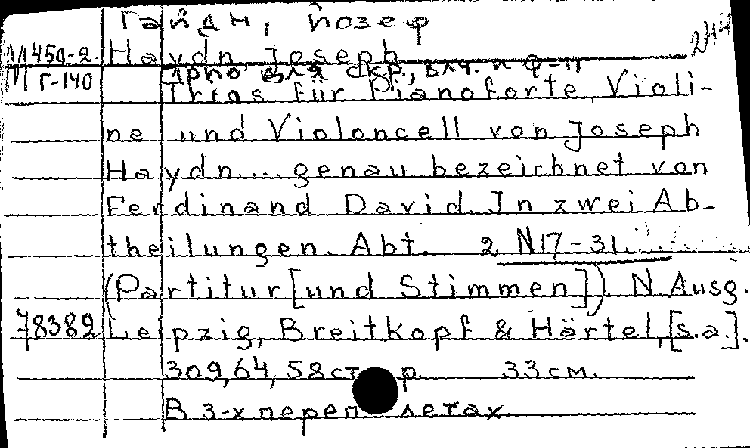 Гайдн, Йозеф
М450-2 Haydn Joseph 244
МГ-140 Трио для скр., влч. и ф-п
Trios für Pianoforte, Violi-
ne und Violoncell von Joseph
Haydn... genau bezeichnet von
Ferdinand David. In zwei Ab-
theilungen. Abt. 2 N17-31.
(Partitur [und Stimmen]). N. Ausg.
78382 Leipzig, Breitkopf & Härtel, [s.a.].
309, 64, 58 стр. 33 см.
В 3-х переплетах